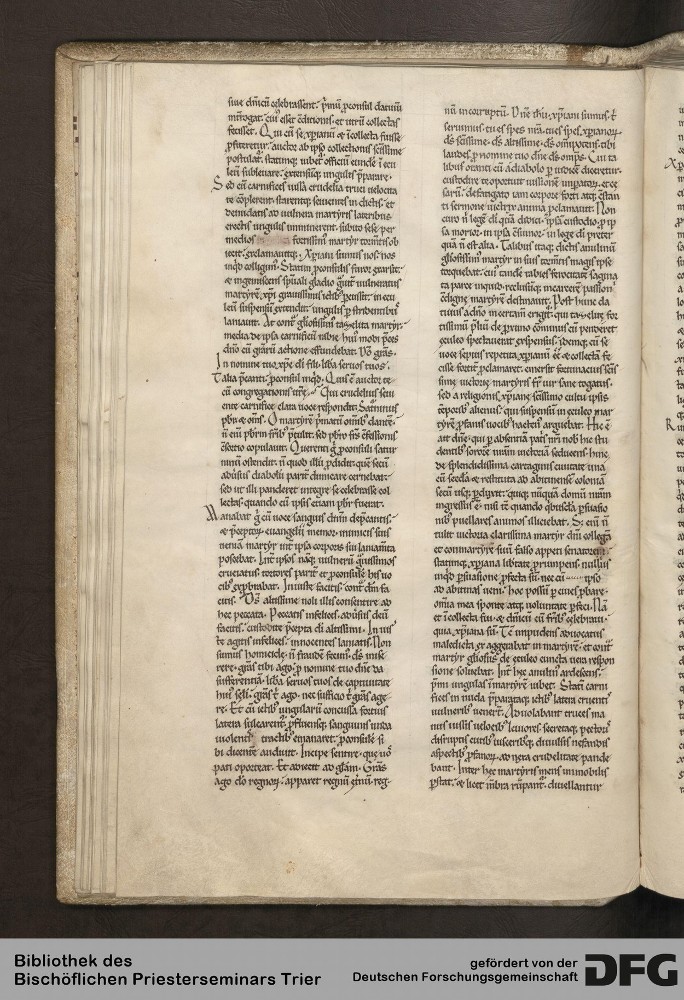 siue dn̄icū celebrassent. p̄mū ꝓconsul datiuū
int̄rogat. cui' esset c̄ditionis. et utrū collectas
fecisset. Qui cū se xp̄ianū & ī collecta fuisse
ꝓfiteretur. auctor ab ipso collectionis sc̄issime
postulat̄. statimq; iubet' officiū eundē ī ecu
leū subleuare. extensūq; ungulis p̄parare.
Sed cū carnifices iussa crudelia truci uelocita
te cōplerent. starentq; seuientes in
denudatis ad uulnera martyris lateribus
erectis ungulis imminerent. subito sese per
medios fortissim' martyr torm̄tis ob
iecit. exclamauitq; Xp̄iani sumus nos nos
inqd̄ colligim'. Statim ꝓconsulis furor exarsit.
& ingemiscens sp̄uali gladio uulneratus
martyrē xp̄i grauissimis ictib; in ecu
leū suspensū extendit. ungulis p̄stridentib;
laniauit. At cont̄ gl'osissim' tazelita martyr.
media de ipsa carnificū rabie hui' modi p̄ces
dn̄o cū gr̄arū actione effundebat. Dō gr̄as.
In nomine tuo xp̄e dī fili. lib̄a seruos tuos.
Talia p̄canti. ꝓconsul inqd̄. Quis ē auctor te
cū congregationis ur̄e. Qui crudelius seui
ente carnifice clara uoce respondit. Saturninus
pb̄r & om̄s. O martyrē p̄matū om̄ib; dantē.
n̄ enī pb̄rm fr̄ib; p̄tulit. sed pb̄ro fr̄s c̄fessionis
c̄sortio copulauit. Querenti g° ꝓconsuli satur
ninū ostendit. n̄ quod illū ꝓdidit. que secū
aduersus diabolū parit̄ dimicare cernebat.
sed ut illi panderet integre se celebrasse col
lectas. quando cū ipsis etiam pb̄r fuerat.
Manabat g° cū uoce sanguis dn̄m dep̄cantis.
& p̄ceptor euangelii memor. inimicis suis
ueniā martyr int̄ ipsa corporis sui laniam̄ta
poscebat. Int̄ ipsos naq; uulnerū grauissimos
cruciatus. tortores parit̄ et ꝓconsulē his uo
cib; exp̄brabat. Iniuste facitis. cont̄ dm̄ fa
citis. Ds̄ altissime noli illis consentire ad
hec peccata. Peccatis infelices. aduersus deū
facitis. custodite p̄cepta dī altissimi. Inius
te agitis infelices. innocentes laniatis. Non
sumus homicide. n̄ fraudē fecim'. Ds̄ mise
rere. gr̄as tibi ago. p nomine tuo dn̄e da
sufferentiā. lib̄a seruos tuos de captiuitate
hui' seculi. gr̄as t̄ ago. nec sufficio t̄ gr̄as age
re. Et cū ictib; ungularū concussa fortius
latera sulcarent. ꝓfluensq; sanguinis unda
uiolentis tractib; emanaret. ꝓconsulē si
bi dicentē audiuit. Incipe sentire. que uos
pati oporteat. Et adiecit ad gl̄am. Gr̄as
ago dō regnorū. apparet regnū et̄nū. reg
nū incorruptū. Dn̄e ih̄u. xp̄iani sumus. t̄
seruimus. tu es spes nr̄a. tu es spes xp̄ianorū.
ds̄ sc̄issime. ds̄ altissime. ds̄ omnipotens. tibi
laudes p nomine tuo dn̄e ds̄ omp̄s. Cui ta
libus oranti cū a diabolo p iudicē diceretur.
custodire te oportuit iussionē imp̄atorū. et ce
sarū. defatigato iam corpore forti atq; c̄stan
ti sermone uictrix anima ꝓclamauit. Non
curo n̄ legē dī quā didici. ipsā custodio. p ip
sa morior. in ipsa c̄sumor. in lege dī. preter
quā n̄ est alia. Talibus itaq; dictis amplius
gl'osissim' martyr in suis torm̄tis magis ipse
torquebat. cui' tande rabies ferocitate sagina
ta parce inquid. reclusūq; in carcere passion
c̄digne martyrē destinauit. Post hunc da
tiuus a dn̄o in certam̄ erigit. qui tazelitā for
tissimū pliū de proximo cominus cū penderet
eculeo spectauerat exp̄ensus. idemq; cū se
uoce sepius repetita xp̄ianū ēē & collecta fe
cisse fortit̄ ꝓclamaret. emersit fortunatius sc̄is
sime uictorie martyris fr̄. uir sane togatus.
sed a religionis xp̄iane sc̄issimo cultu ipsis
tēporib; alienus. qui suspensū in eculeo mar
tyrē ꝓfanis uocib; hacten' arguebat. Hic ē
ait dn̄e. qui p absentiā patris nr̄i nob̄ hic stu
dentib; sororē nr̄am uictoriā seducens. hinc
de splendidissima cartaginis ciuitate una
cū secūda & restituta ad abitinensē coloniā
secū usq; ꝓduxit. quiq; nūquā domū nr̄am
ingressus ē. nisi t̄c quando qibusdā ꝓsuasio
nib; puellares animos illiciebat. Sed enī n̄
tulit uictoria clarissima martyr dm̄ collegā
et conmartyrē suū falso appeti senatorem.
statimq; xp̄iana libtate prūmpens. nullius
inqd̄ ꝓsuasione. ꝓfecta sū. nec cū ipso
ad abitinas ueni. hoc possū p ciues ꝓbare.
om̄ia mea sponte atq; uoluntate ꝓfeci. Nā
et ī collecta fui. & dn̄icū cū fr̄ib; celebraui.
qua xp̄iana sū. Tc̄ impudens aduocatus
maledicta exaggerabat in martyrē. et cont̄
martyr gl'osus de eculeo cuncta uera respon
sione soluebat. Int̄ hec anulin' ardescens.
p̄mi ungulas ī martyrē iubet. Statī carni
fices in nuda p̄parataq; ictib; latera cruentis
uulnerib; uenert̄. Aduolabant truces ma
nus iussis uelocib; leuiores. secretaq; pectoris
disruptis cutib; uiscerib;q; diuulsis nefandis
aspectib; ꝓfanorū. ad nexa crudelitate pande
bant. Inter hec martyris mens immobilis
ꝑstat. & licet mēbra rūpant̄. diuellantur
Bibliothek des
Bischöflichen Priesterseminars Trier
gefördert von der
Deutschen Forschungsgemeinschaft
DFG